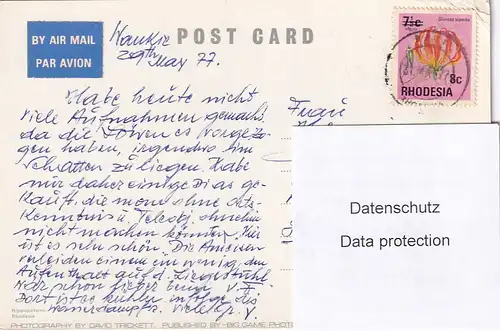 BY AIR MAIL
PAR AVION
Wankie
29th May 77.
POST CARD
7½c
Gloriosa superba
8c
RHODESIA
Habe heute nicht
viele Aufnahmen gemacht
da die Löwen es vorgezo-
gen haben, irgendwo im
Schatten zu liegen. Habe
mir daher einige Dias ge-
kauft, die man ohne Orts-
kenntnis u. Teleobj. ohnehin
nicht machen könnte. Hier
ist es sehr schön. Die Ameisen
verleiden einem ein wenig den
Aufenthalt auf d. Liegestuhl
Wär schon lieber beim V. F.
Dort ist es kühler infolge des
Wasserdampfs. Viele Gr. V.
Frau
Datenschutz
Data protection
PHOTOGRAPHY BY DAVID TRICKETT. PUBLISHED BY BIG GAME PHOT